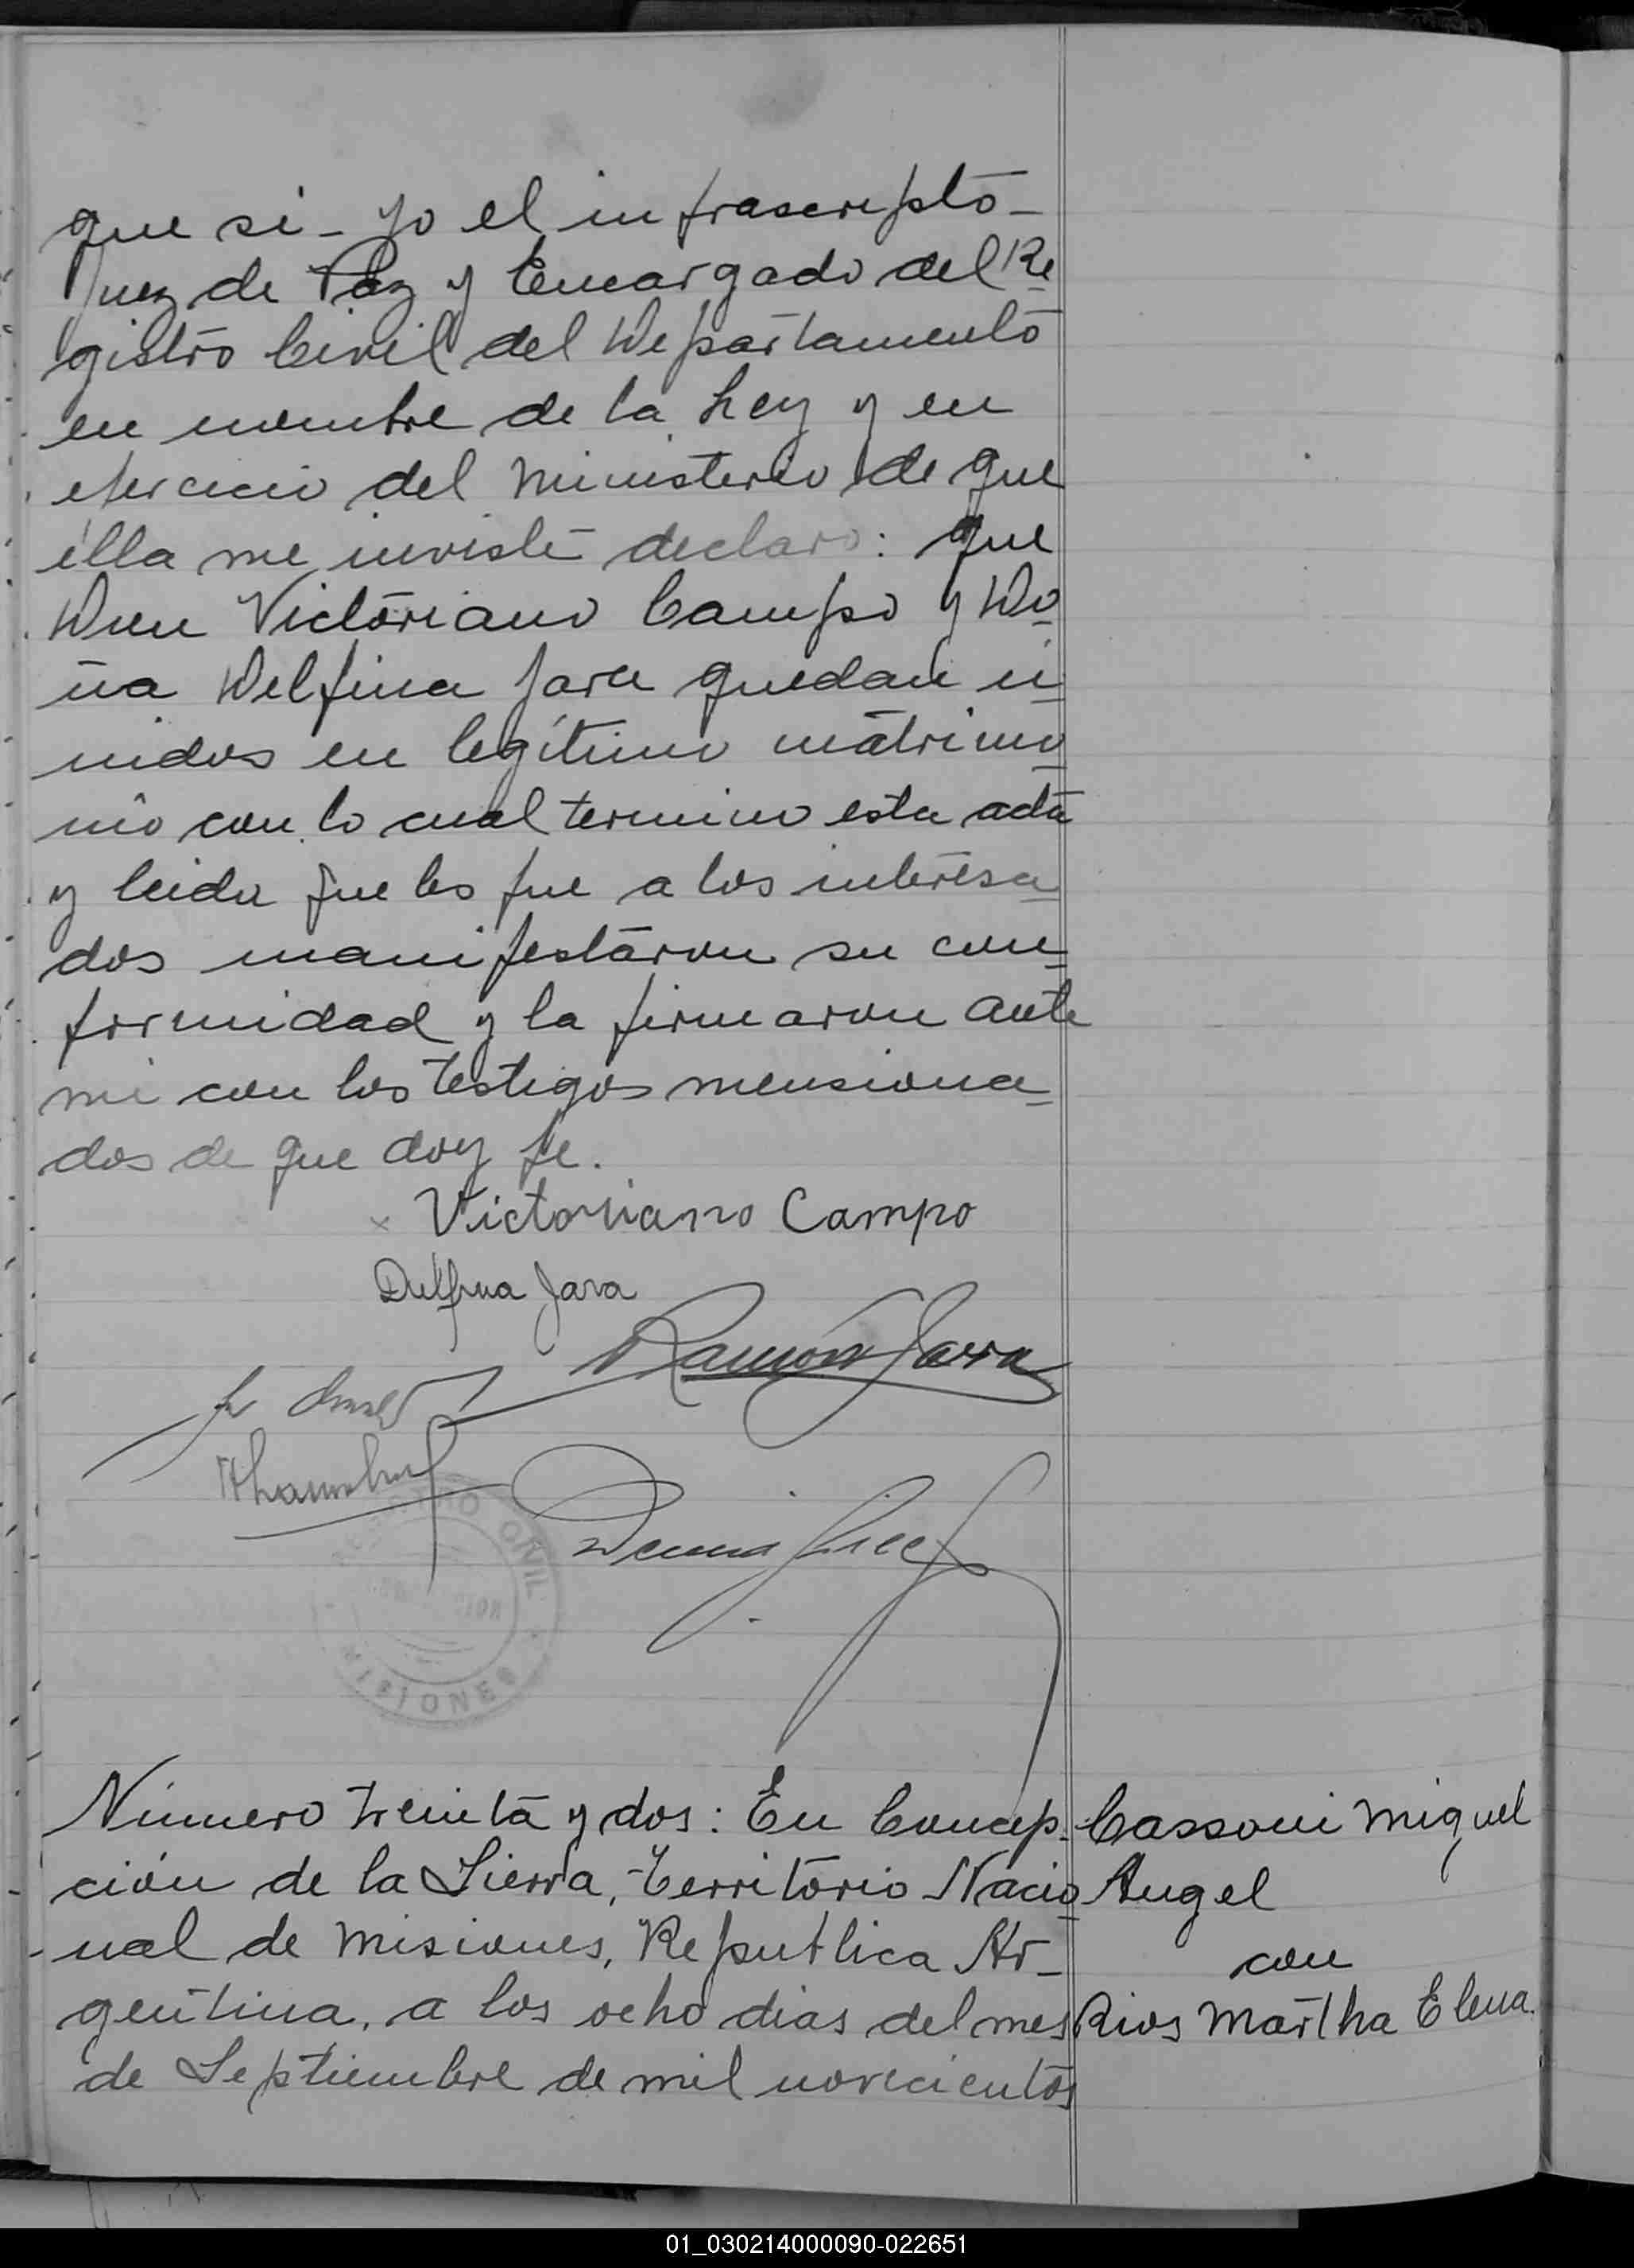 que si - yo el infrascripto -
Juez de Paz y Encargado del Re
gistro Civil del Departamento
en nombre de la Ley y en
ejercicio del Ministerio de que
élla me inviste declaro: que
Don Victoriano Campo y Do
ña Delfina Jara quedan u
nidos en legítimo matrimo
nio con lo cual termino esta acta
y leida que les fue a los interesa
dos manifestaron su con
formidad y la firmaron ante
mi con los testigos mensiona
dos de que doy fe.
x Victoriano Campo
Delfina Jara
Ramón Jara
CIVIL
MISIONES
Número treinta y dos: En Concep-
ción de la Sierra, Territorio Nacio
nal de Misiones, Republica Ar-
gentina, a los ocho dias del mes
de Septiembre de mil novecientos
Cassoni Miguel
Angel
con
Rios Martha Elena.
01_030214000090-022651